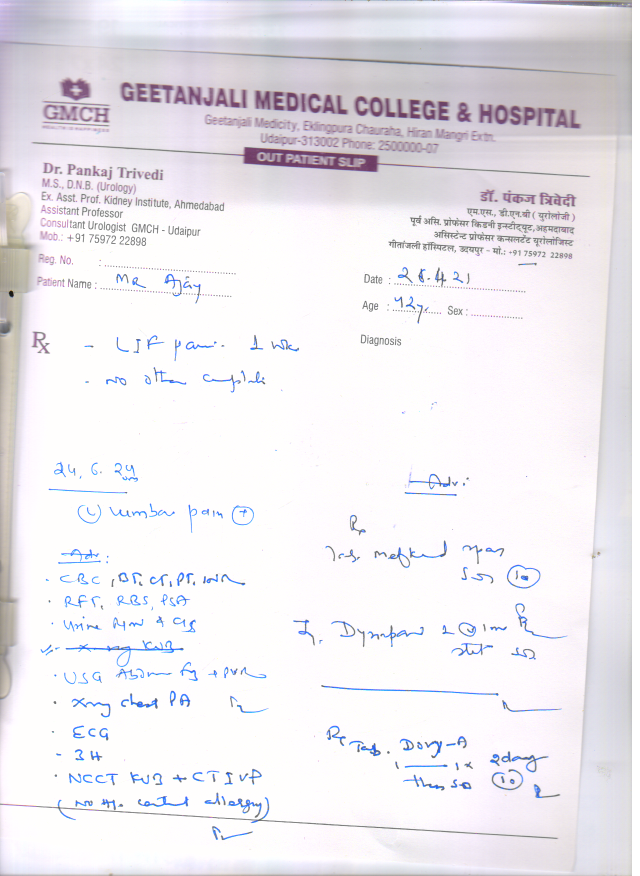 GMCH
GEETANJALI MEDICAL COLLEGE & HOSPITAL
Geetanjali Medicity, Eklingpura Chauraha, Hiran Mangri Extn.
Udaipur-313002 Phone: 2500000-07
OUT PATIENT SLIP
Dr. Pankaj Trivedi
M.S., D.N.B. (Urology)
Ex. Asst. Prof. Kidney Institute, Ahmedabad
Assistant Professor
Consultant Urologist GMCH - Udaipur
Mob.: +91 75972 22898
डॉ. पंकज त्रिवेदी
एम.एस., डी.एन.बी ( यूरोलॉजी )
पूर्व असि. प्रोफेसर किडनी इन्स्टीट्यूट, अहमदाबाद
असिस्टेन्ट प्रोफेसर कन्सलटेंट यूरोलॉजिस्ट
गीतांजली हॉस्पिटल, उदयपुर - मो.: +91 75972 22898
Reg. No. :
Patient Name : MR Ajay
Date : 28.4.21
Age : 42y. Sex :
Diagnosis
Rx
- LIF pain. 1 wk
- No other
24.6.24
(L) lumbar pain (+)
Adv:
. CBC, BT, CT, PT, INR
. RFT, RBS, PSA
. Urine R/M & C/S
X-ray KUB
. USG Abdomen + PVR
. Xray chest PA
. ECG
- 3H
. NCCT KUB + CT IVP
(No H/o allergy)
Adv:
Rx
Tab. spas
SOS (10)
1 stat SOS
Rx Tab. A
1 — 1 x 2 days
then SOS (10)